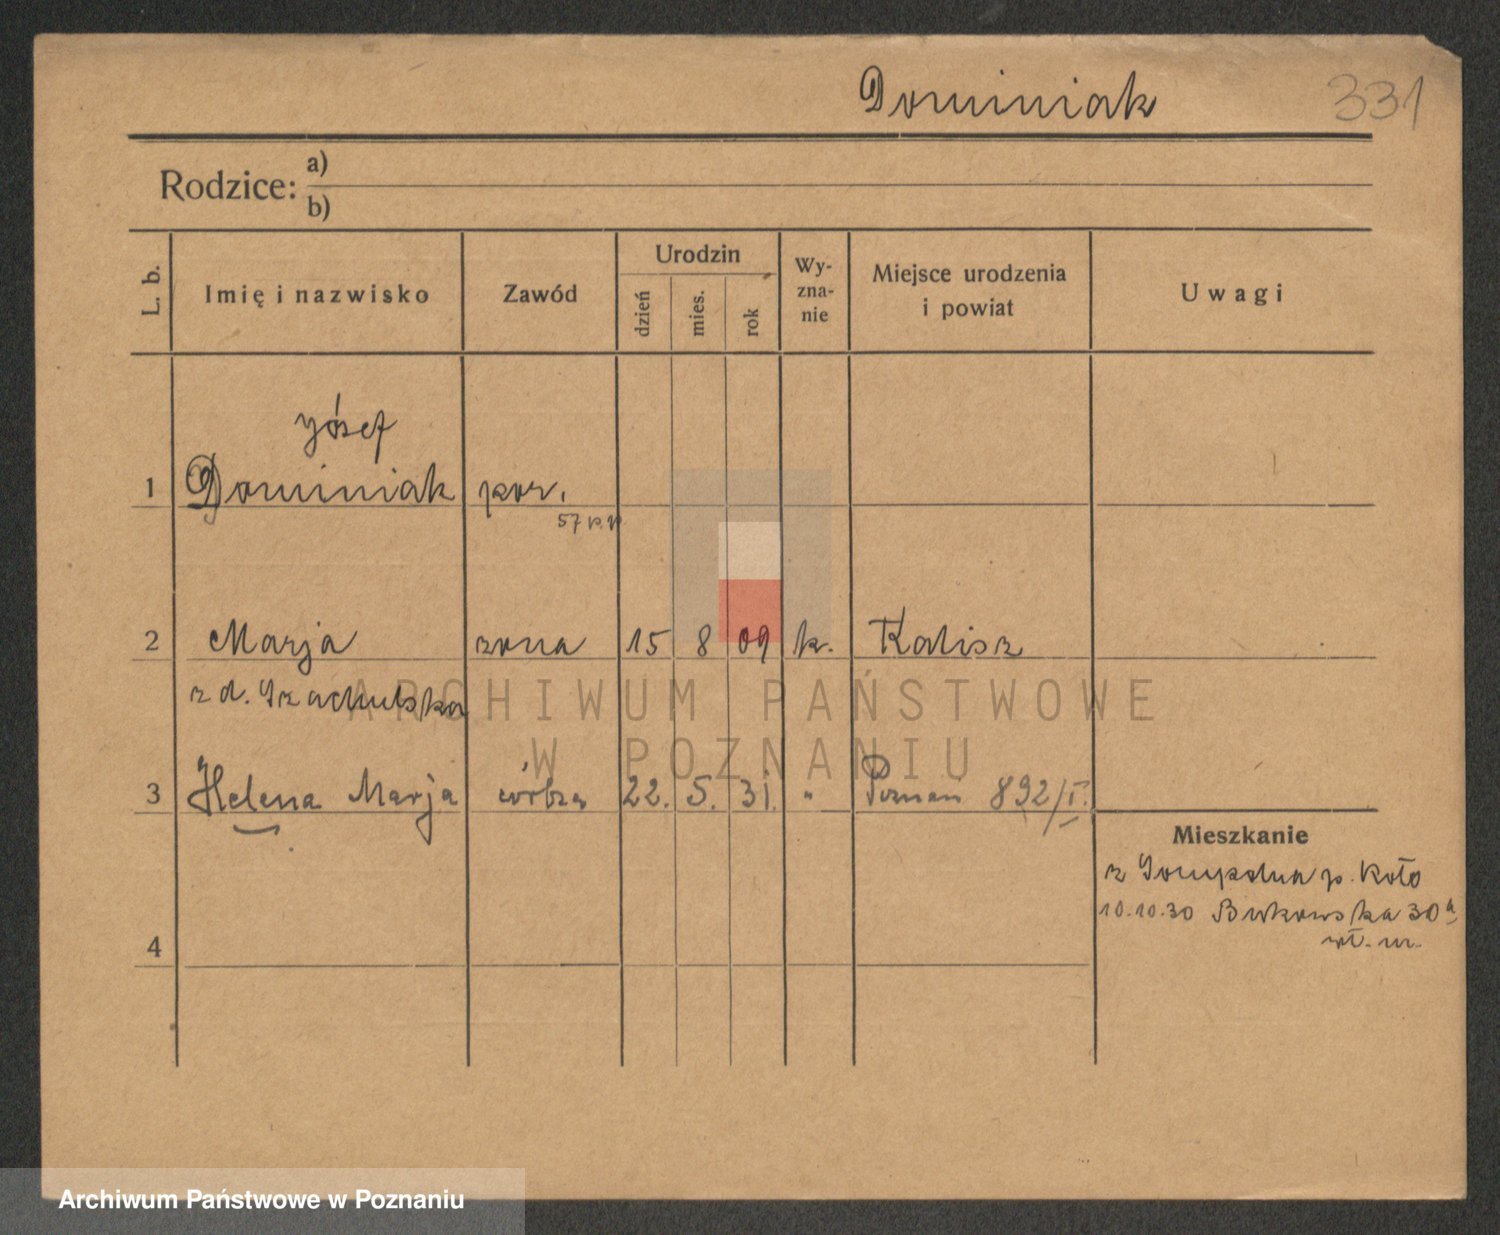 Dominiak 331
Rodzice: a)
b)
L. b. Imię i nazwisko Zawód Urodzin dzień mies. rok Wy-zna-nie Miejsce urodzenia i powiat Uwagi
Józef
1 Dominiak por.
57 p.p.
2 Marja żona 15 8 09 k. Kalisz
z d.
3 Helena Marja córka 22. 5. 31. " Poznań 892/I.
Mieszkanie
z p. Koło
10.10.30 Bukowska 30a
wł. m.
4
ARCHIWUM PAŃSTWOWE
W POZNANIU
Archiwum Państwowe w Poznaniu